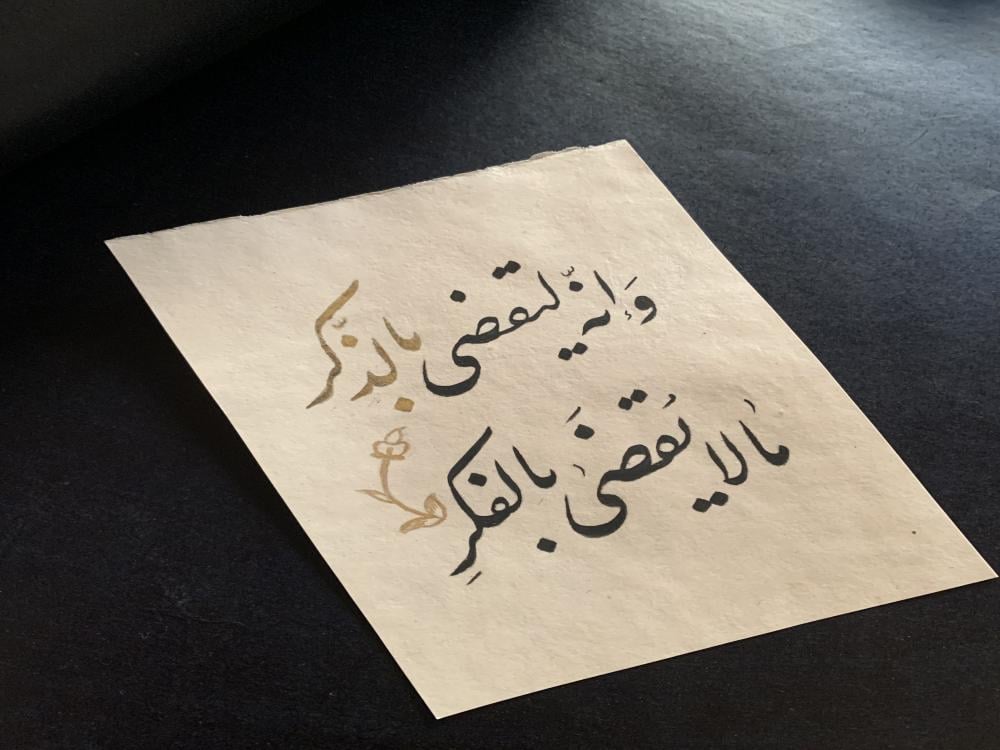 وَإنّه ليقضى بالذّكر
ما لا يُقضَى بالفكرِ